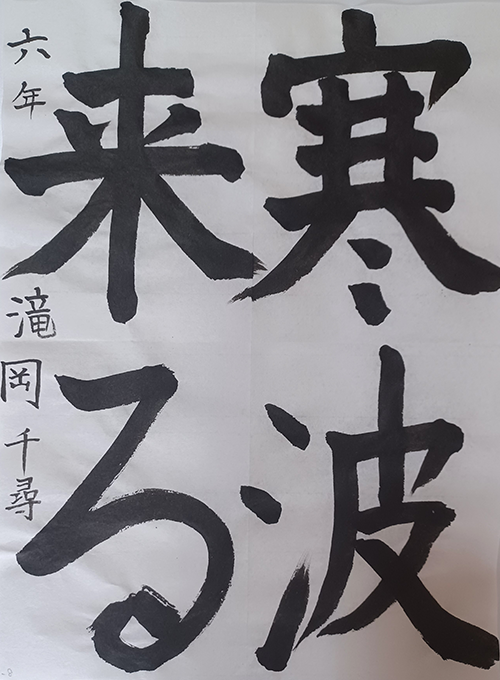 寒波
来る
六年 滝岡千尋